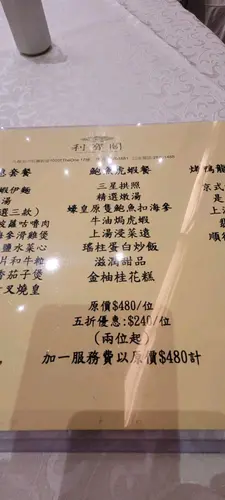 利寶閣
套餐
蝦伊麵
湯
選三款)
菠蘿咕嚕肉
海參滑雞煲
鹽水菜心
片和牛粒
茄子煲
叉燒皇
鮑魚虎蝦餐
三星拱照
精選燉湯
蠔皇原隻鮑魚扣海參
牛油焗虎蝦
上湯浸菜遠
瑤柱蛋白炒飯
滋潤甜品
金柚桂花糕
原價$480/位
五折優惠:$240/位
(兩位起)
加一服務費以原價$480計
烤鴨龍
京式
是
上湯
順德